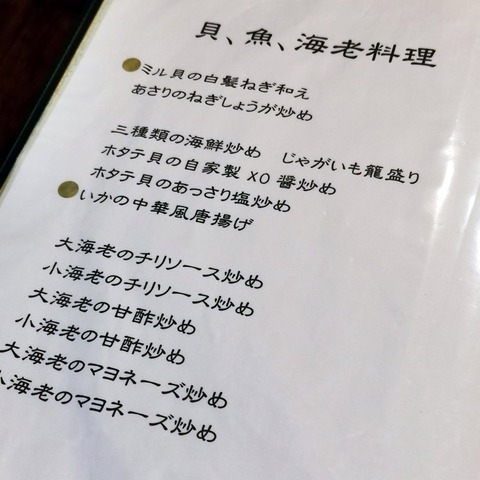 貝、魚、海老料理
ミル貝の白髪ねぎ和え
あさりのねぎしょうが炒め
三種類の海鮮炒め　じゃがいも籠盛り
ホタテ貝の自家製XO醤炒め
ホタテ貝のあっさり塩炒め
いかの中華風唐揚げ
大海老のチリソース炒め
小海老のチリソース炒め
大海老の甘酢炒め
小海老の甘酢炒め
大海老のマヨネーズ炒め
小海老のマヨネーズ炒め